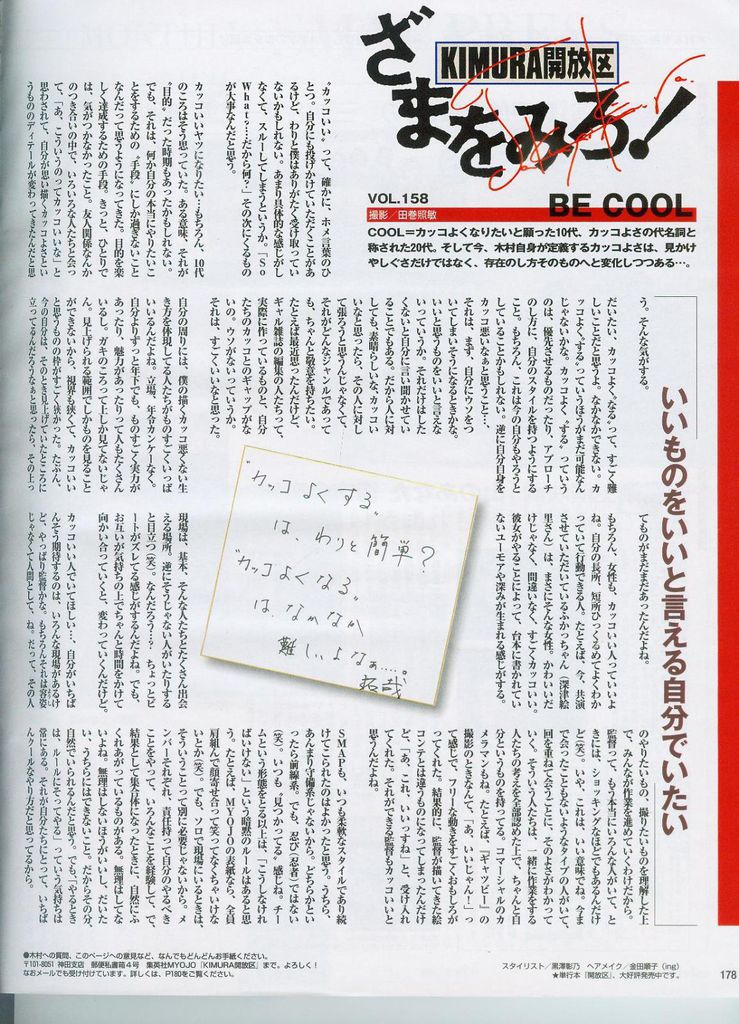 ざまをみろ!
KIMURA開放区
VOL.158
撮影／田巻照敏
BE COOL
COOL=カッコよくなりたいと願った10代、カッコよさの代名詞と
称された20代。そして今、木村自身が定義するカッコよさは、見かけ
やしぐさだけではなく、存在のし方そのものへと変化しつつある…。
いいものをいいと言える自分でいたい
“カッコいい”って、確かに、ホメ言葉のひ
とつ。自分にも投げかけていただくことがあ
るけど、わりと僕はありがたく受け取ってい
ないかもしれない。あまり具体的な感じがし
なくて、スルーしてしまうというか。『So
What?……だから何?』その次にくるもの
が大事なんだと思う。
カッコいいヤツになりたい…もちろん、10代
のころはそう思っていた。ある意味、それが
“目的”だった時期もあったかもしれない。
でも、それは、何か自分の本当にやりたいこ
とをするための“手段”にしか過ぎないこと
なんだって思うようになってきた。目的を楽
しく達成するための手段。きっと、ひとりで
は、気がつかなかったこと。友人関係なんか
のつき合いの中で、いろいろな人たちと会っ
て、「あ、こういうのってカッコいいな」と
思わされて、自分が思い描くカッコよさとい
うもののディテールが変わってきたんだと思
う。そんな気がする。
だいたい、カッコよく“なる”って、すごく難
しいことだと思うよ。なかなかできない。カ
ッコよく“する”っていうほうがまだ可能なん
じゃないかな。カッコよく“する”っていう
のは、優先させるものだったり、アプローチ
のし方に、自分のスタイルを持つようにする
こと。もちろん、これは今の自分もやろうと
していることかもしれない。逆に自分自身を
カッコ悪いなあと思うこと…
それは、まず、自分にウソをつ
いてしまいそうになるときかな。
いいと思うものをいいと言えな
いっていうか。それだけはした
くないと自分に言い聞かせてい
ることでもある。だから人に対
しても、素晴らしいな、カッコい
いなと思ったら、その人に対し
て張ろうと思うんじゃなくて、
それがどんなジャンルであって
も、ちゃんと敬意を持ちたい。
たとえば最近思ったんだけど、
ギャル雑誌の編集の人たちって、
実際に作っているものと、自分
たちのカッコとのギャップがな
いの。ウソがないっていうか。
それは、すごくいいなと思った。
自分の周りには、僕の描くカッコ悪くない生
き方を体現してる人たちがものすごくいっぱ
いいるんだよね。立場、年令カンケーなく。
自分よりずっと年下でも、ものすごく実力が
あったり、魅力があったりって人もたくさん
いるし。ガキのころって上しか見てないじゃ
ん。見上げられる範囲でしかものを見ること
ができないから、視界も狭くて、カッコいい
と思うものの枠がすごく狭かった。たぶん、
今の自分は、そのとき見上げていたところに
立ってるんだろうなぁと思ったら、その上っ
てものがまだまだあったんだよね。
もちろん、女性も、カッコいい人っていいよ
ね。自分の長所、短所ひっくるめてよくわか
っていて行動できる人。たとえば、今、共演
させていただいているふかっちゃん（深津絵
里さん）は、まさにそんな女性。かわいいだ
けじゃなく、間違いなく、すごくカッコいい。
彼女がやることによって、台本に書かれてい
ないユーモアや深みが生まれる感じがする。
“カッコよくする”
は、わりと簡単?
“カッコよくなる”
は、なかなか
難しいよなぁ…。
拓哉
現場は、基本、そんな人たちとたくさん出会
える場所。逆にそうじゃない人がいたりする
と目立つ（笑）。なんだろう…? ちょっとビ
ートがズレてる感じがするんだよね。でも、
お互いが気持ちの上でちゃんと時間をかけて
向かい合っていくと、変わっていくんだけど。
カッコいい人でいてほしい…、自分がいちば
んそう期待するのは、いろんな現場があるけ
ど、やっぱり監督かな。もちろんそれは容姿
じゃなくて人間として、ね。だって、その人
のやりたいもの、撮りたいものを理解した上
で、みんなが作業を進めていくわけだから。
監督って、もう本当にいろんな人がいて、と
きには、ショッキングなほどでもあるんだけ
ど（笑）。いや、これは、いい意味でね。今ま
で会ったこともないようなタイプの人がいて、
回を重ねて会うごとに、そのよさがわかって
いく。そういう人たちは、一緒に作業する
人たちの考えを全部認めた上で、ちゃんと自
分というものを持ってる。コマーシャルのカ
メラマンもね。たとえば『ギャツビー』の
撮影のときなんて、「あ、いいじゃん!」っ
て感じで、フリーな動きをすごくおもしろが
ってくれた。結果的に、監督が描いてきた絵
コンテとは違うものになってしまったんだけ
ど、「あ、これ、いいっすね」と、受け入れ
てくれた。それができる監督もカッコいいと
思うんだよね。
SMAPも、いつも柔軟なスタイルであり続
けてこられたのはよかったと思う。うちら、
あんまり守備系じゃないから。どちらかとい
ったら前線系。でも、忍び（忍者）ではない
（笑）。いつも“見つかってる”感じね。チー
ムという形態をとる以上は、「こうしなけれ
ばいけない」という暗黙のルールはあると思
う。たとえば、MYOJOの表紙なら、全員
肩組んで顔寄せ合って笑ってなくちゃいけな
いとか（笑）。でも、ソロで現場にいるときは、
そういうことって別に必要じゃないから。メ
ンバーそれぞれ、責任持って自分のやるべき
ことをやって、いろんなことを経験して、で、
結果として集合体になったときに、自然にふ
くれあがっているものがある。無理はしてな
いよね。無理はしないほうがいいし、だいた
い、うちらにはできないこと。だからその分、
自然でいられるんだと思う。でも、“やるとき
は、ルールにそってやる”っていう気持ちは
常にある。それが自分たちにとって、いちば
んクールなやり方だと思ってるから。
●木村への質問、このページへの意見など、なんでもどんどんお手紙ください。
〒101-8051 神田支店 郵便私書箱4号 集英社MYOJO「KIMURA開放区」まで。よろしく!
なおメールでも受け付けています。詳しくは、P180をご覧ください。
スタイリスト／黒澤彰乃 ヘアメイク／金田順子（ing）
★単行本『開放区』、大好評発売中です。
178